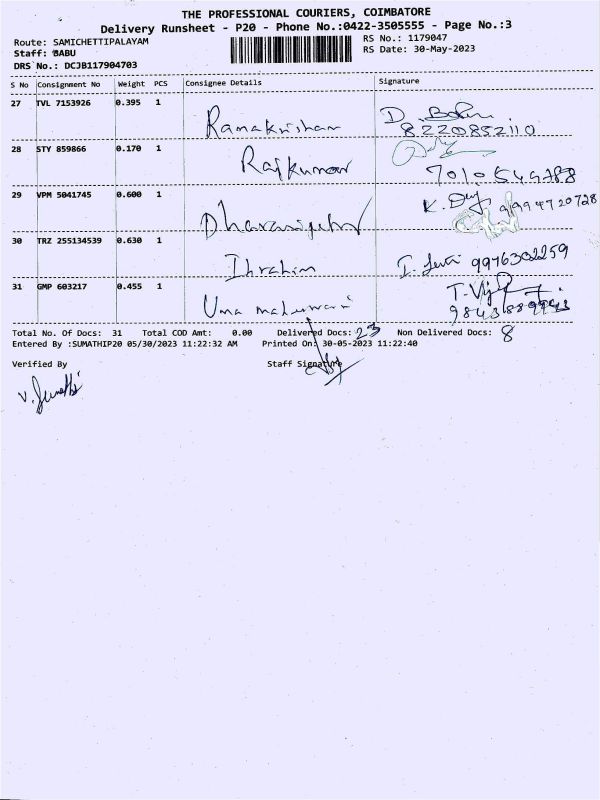 THE PROFESSIONAL COURIERS, COIMBATORE
Delivery Runsheet - P20 - Phone No.:0422-3505555 - Page No.:3
Route: SAMICHETTIPALAYAM
RS No.: 1179047
Staff: BABU
RS Date: 30-May-2023
DRS No.: DCJB117904703
S No Consignment No Weight PCS Consignee Details Signature
27 TVL 7153926 0.395 1
Ramakrishnan 8220852110
28 STY 859866 0.170 1
Rajkumar
29 VPM 5041745 0.600 1
30 TRZ 255134539 0.630 1
Ibrahim 9976302259
31 GMP 603217 0.455 1
Uma maheswari
Total No. Of Docs: 31 Total COD Amt: 0.00 Delivered Docs: 23 Non Delivered Docs: 8
Entered By :SUMATHIP20 05/30/2023 11:22:32 AM Printed On: 30-05-2023 11:22:40
Verified By Staff Signature
V. Sumathi